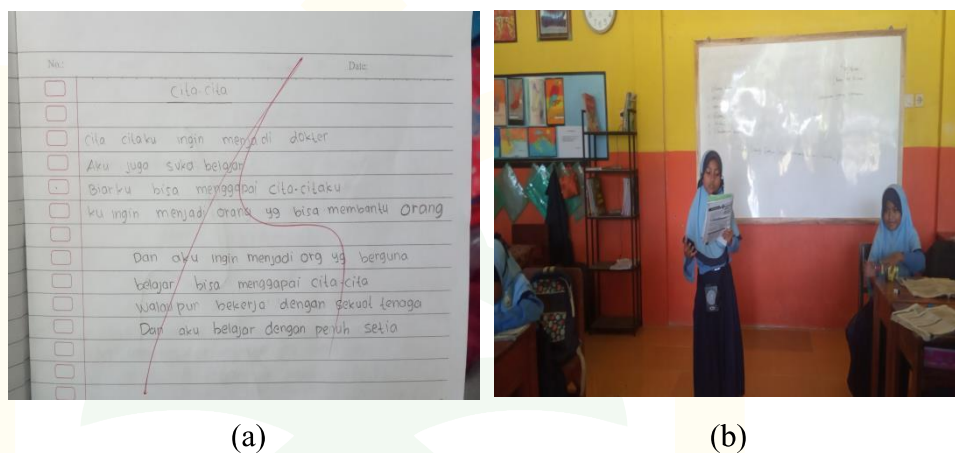 No.:
Date:
Cita-cita
Cita citaku ingin menjadi dokter
Aku juga suka belajar
Biarku bisa menggapai cita-citaku
ku ingin menjadi orang yg bisa membantu orang
Dan aku ingin menjadi org yg berguna
belajar bisa menggapai cita-cita
walau pun bekerja dengan sekuat tenaga
Dan aku belajar dengan penuh setia
(a)
(b)